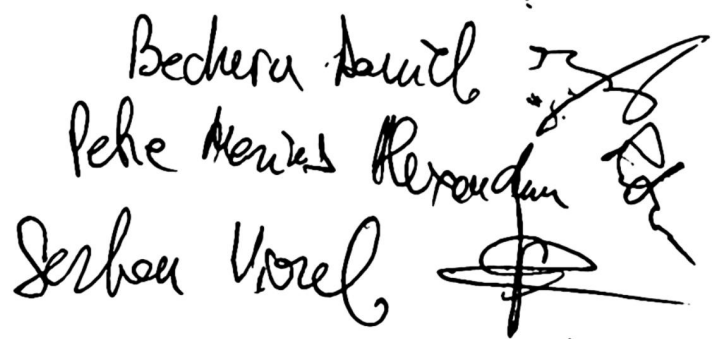 Becheru Daniel
Petre Marius Alexandru
Serban Viorel